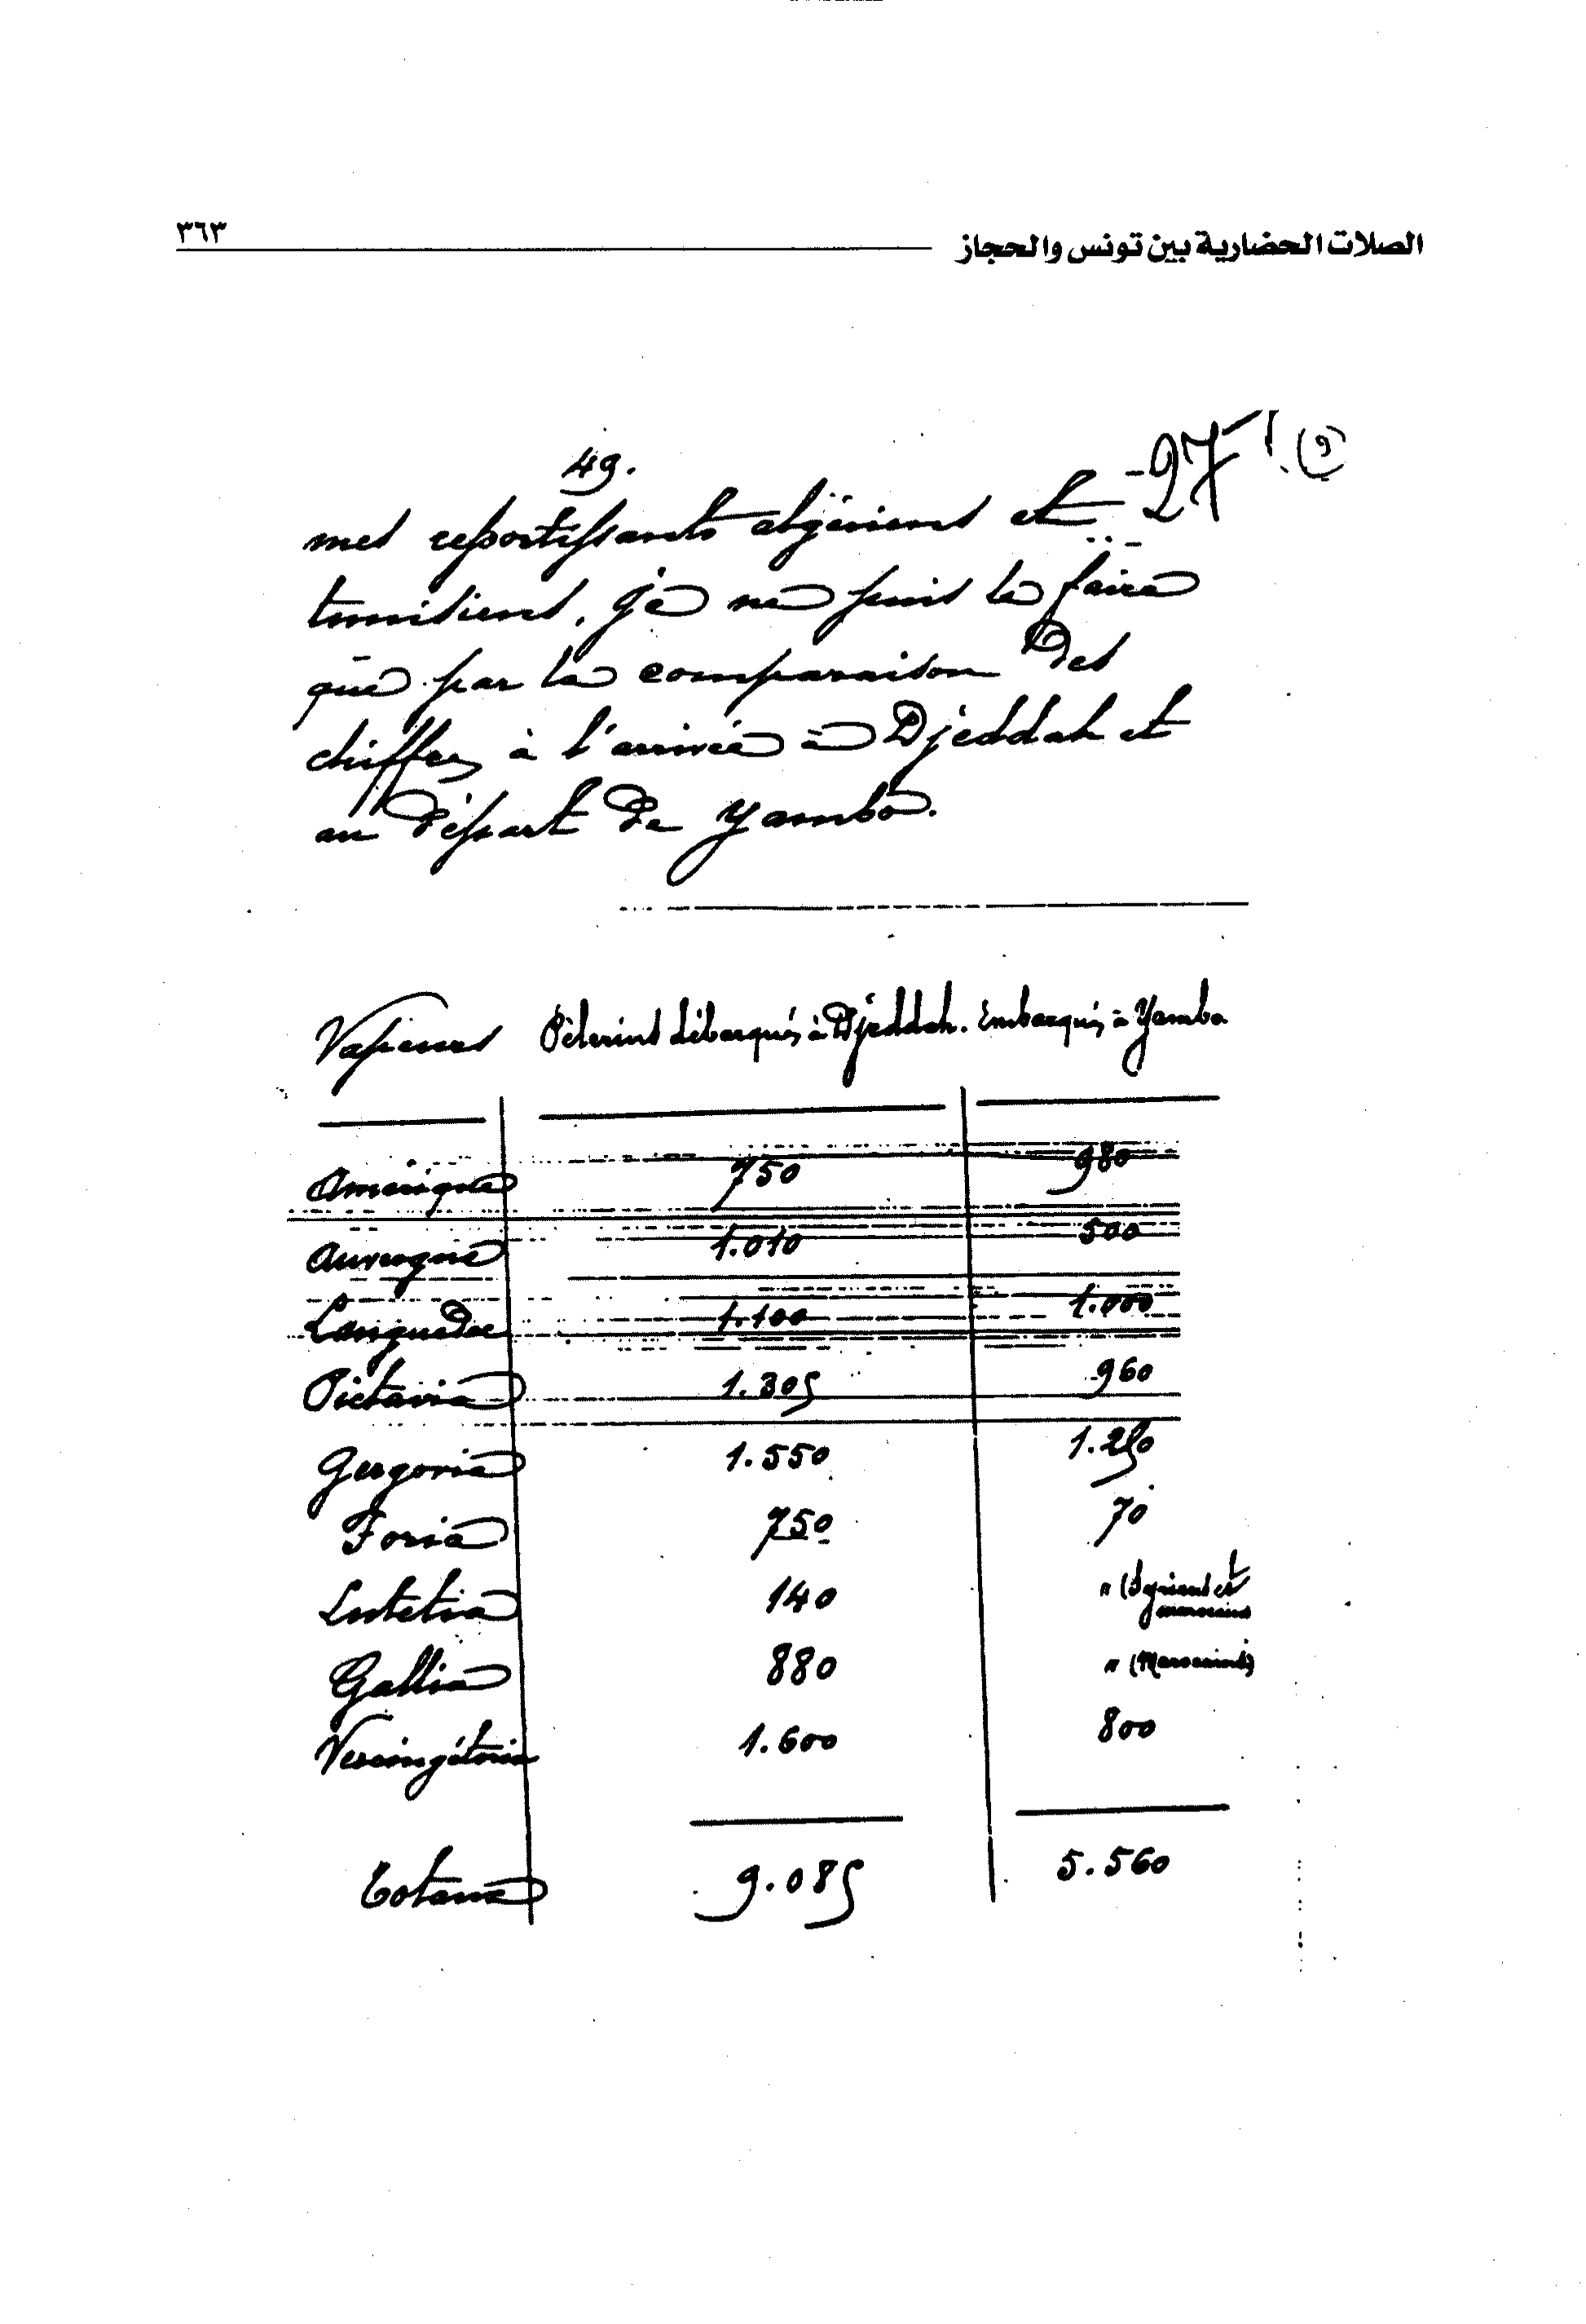 ٣٦٣
الصلات الحضارية بين تونس والحجاز
49.
mes ressortissants algériens et
tunisiens, je ne puis le faire
que par la comparaison des
chiffres à l'arrivée à Djeddah et
au départ de Yambo.
Vapeurs Pèlerins débarqués à Djeddah. Embarqués à Yambo
Amérique 750 980
Auvergne 1.010 500
Languedoc 1.100 1.000
Pictavia 1.305 960
Gergovia 1.550 1.250
Foria 750 70
Lutetia 140 " (Syriens et marocains
Gallia 880 " (Marocains)
Vercingétorix 1.600 800
Totaux 9.085 5.560